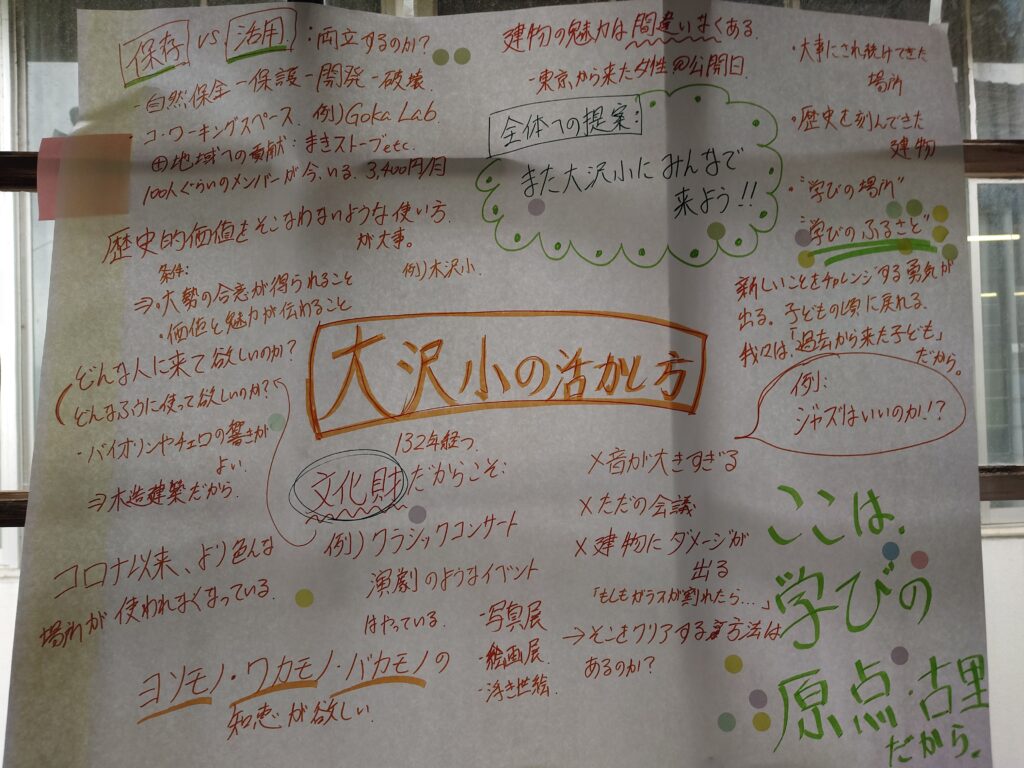 保存 vs 活用：両立するのか？
-自然保全-保護-開発-破壊
コ・ワーキングスペース 例)Goka Lab
⊕地域への貢献：まきストーブetc.
100人ぐらいのメンバーが今、いる. 3,400円/月
歴史的価値をそこなわないような使い方
が大事。
例)木沢小.
条件:
⇒・大勢の合意が得られること
・価値と魅力が伝わること
どんな人に来て欲しいのか？
どんなふうに使って欲しいのか？
・バイオリンやチェロの響きが
よい.
⇒木造建築だから.
コロナ以来、より色んな
場所が使われなくなっている.
ヨソモノ・ワカモノ・バカモノの
知恵が欲しい.
建物の魅力は間違いなくある.
-東京から来た女性@公開日
全体への提案：
また大沢小にみんなで
来よう!!
大沢小の活かし方
132年経つ
文化財だからこそ：
例)クラシックコンサート
演劇のようなイベント
はやっている.
-写真展
-絵画展.
-浮き世絵
×音が大きすぎる
×ただの会議
×建物にダメージが
出る
「もしもガラスが割れたら…」
→そこをクリアする方法は
あるのか？
・大事にされ続けてきた
場所
・歴史を刻んできた
建物
・"学びの場所"
"学びのふるさと"
新しいことをチャレンジする勇気が
出る。子どもの頃に戻れる.
我々は、「過去から来た子ども」
だから。
例:
ジャズはいいのか!?
ここは.
学びの
原点 古里
だから。